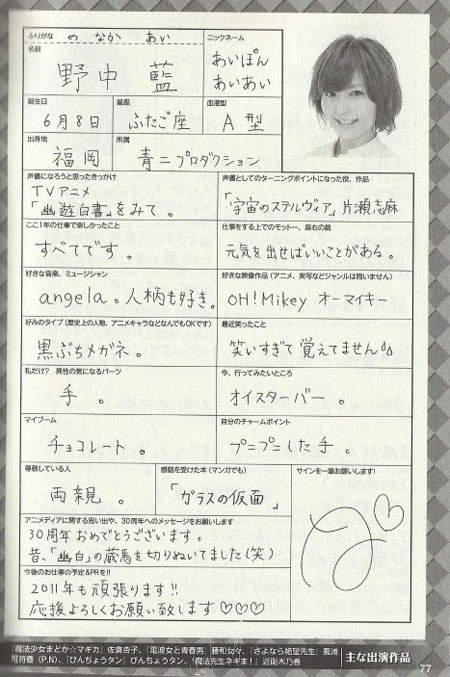 ふりがな のなか あい
名前
野中 藍
ニックネーム
あいぽん
あいあい
誕生日
6月8日
星座
ふたご座
血液型
A型
出身地
福岡
所属
青二プロダクション
声優になろうと思ったきっかけ
TVアニメ
「幽遊白書」をみて。
声優としてのターニングポイントになった役、作品
「宇宙のステルヴィア」片瀬志麻
ここ1年の仕事で楽しかったこと
すべてです。
仕事をする上でのモットー、座右の銘
元気を出せばいいことがある。
好きな音楽、ミュージシャン
angela。人柄も好き。
好きな映像作品(アニメ、実写などジャンルは問いません)
OH!Mikey オーマイキー
好みのタイプ(歴史上の人物、アニメキャラなどなんでもOKです)
黒ぶちメガネ。
最近笑ったこと
笑いすぎて覚えてません
私だけ? 異性の気になるパーツ
手。
今、行ってみたいところ
オイスターバー。
マイブーム
チョコレート。
自分のチャームポイント
プニプニした手。
尊敬している人
両親。
感銘を受けた本(マンガでも)
「ガラスの仮面」
サインを一筆お願いします!
アニメディアに関する思い出や、30周年へのメッセージをお願いします
30周年おめでとうございます。
昔、「幽白」の蔵馬を切りぬいてました(笑)
今後のお仕事の予定&PRを!!
2011年も頑張ります!!
応援よろしくお願い致します♡♡♡
「魔法少女まどか☆マギカ」佐倉杏子、「電波女と青春男」藤和女々、「さよなら絶望先生」風浦
可符香(P.N)、「びんちょうタン」びんちょうタン、「魔法先生ネギま!」近衛木乃香
主な出演作品
77